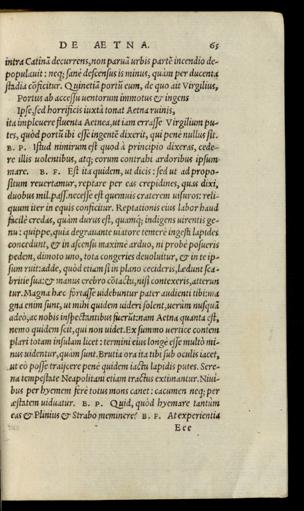 DE AETNA. 65
intra Catinã decurrens, non paruã urbis partẽ incendio de-
populauit: neq; sanè descensus is minus, quàm per ducenta
stadia cõficitur. Quinetiã portũ eum, de quo ait Virgilius,
Portus ab accessu uentorum immotus & ingens
Ipse, sed horrificis iuxtà tonat Aetna ruinis,
ita impleuere fluenta Aetnea, ut iam errasse Virgilium pu-
tes, quòd portũ ibi esse ingentẽ dixerit, qui penè nullus sit.
B. P. Istud nimirum est quod à principio dixeras, cede-
re illis uolentibus, atq; eorum contrahi ardoribus ipsum
mare. B. F. Est ita quidem, ut dicis: sed ut ad propo-
situm reuertamur, reptare per eas crepidines, quas dixi,
duobus mil. pass. necesse est quemuis craterem uisuros: reli-
quum iter in equis conficitur. Reptationis eius labor haud
facilè credas, quàm durus est, quamq; indigens uirentis ge-
nu: quippe, quia degrauante uiatore temerè ingesti lapides
concedunt, & in ascensu maximè arduo, ni probè posueris
pedem, dimoto uno, tota congeries deuoluitur, & in te ip-
sum ruit: adde, quòd etiam si in plano cecideris, lædunt sca-
britie sua: & manus crebro cõtactu, nisi contexeris, atterun
tur. Magna hæc fortasse uidebuntur pater audienti tibi: ma
gna enim sunt, ut mihi quidem uideri solent, uerùm nusquã
adeò, ac nobis inspectantibus fuerũt: nam Aetna quanta est,
nemo quidem scit, qui non uidet. Ex summo uertice contem
plari totam insulam licet: termini eius longè esse multò mi-
nus uidentur, quàm sunt. Brutia ora ita tibi sub oculis iacet,
ut eò posse traijcere penè quidem iactu lapidis putes. Sere-
na tempestate Neapolitani etiam tractus extimantur. Niui-
bus per hyemem ferè totus mons canet: cacumen neq; per
æstatem uiduatur. B. P. Quid, quòd hyemare tantùm
eas & Plinius & Strabo meminere? B. F. At experientia
Ece